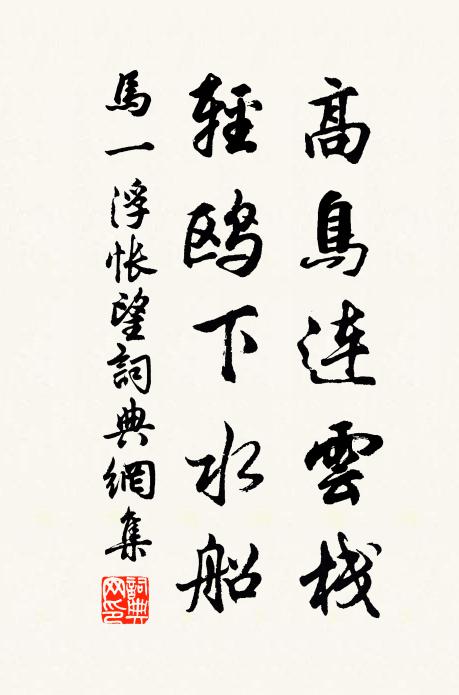 高鳥連雲棧
輕鷗下水船
馬一浮悵望詞典網集
詞典网印